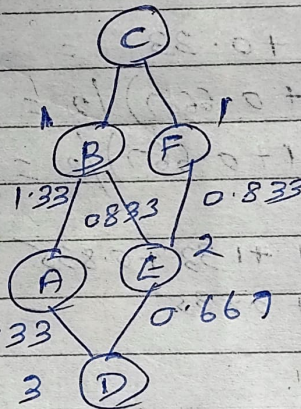 C
1 B F 1
1.33 0.833 0.833
A E 2
.33 0.669
3 D